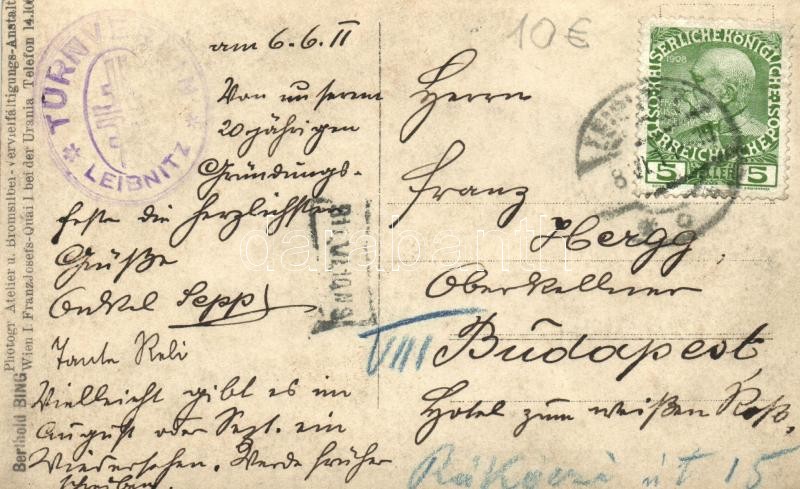 Berthold BING
Photogr. Atelier u. Bromsilber-Vervielfältigungs-Anstalt
Wien I Franz Josefs-Quai 1 bei der Urania Telefon 14.10
TURNVEREIN
* LEIBNITZ *
am 6.6.11
Von unserem
20 jährigen
Gründungs-
feste die herzlichsten
Grüße
Onkel Sepp
Tante Reli
Vielleicht gibt es im
August oder Sept. ein
Wiedersehen. Werde früher
schreiben.
10€
KAISERLICHE KÖNIGLICHE
ÖSTERREICHISCHE POST
1908
5 HELLER 5
Herrn
Franz Hergg
Oberkellner
VIII Budapest,
Hotel zum weißen Roß.
Rákóczi út 15
darabanth